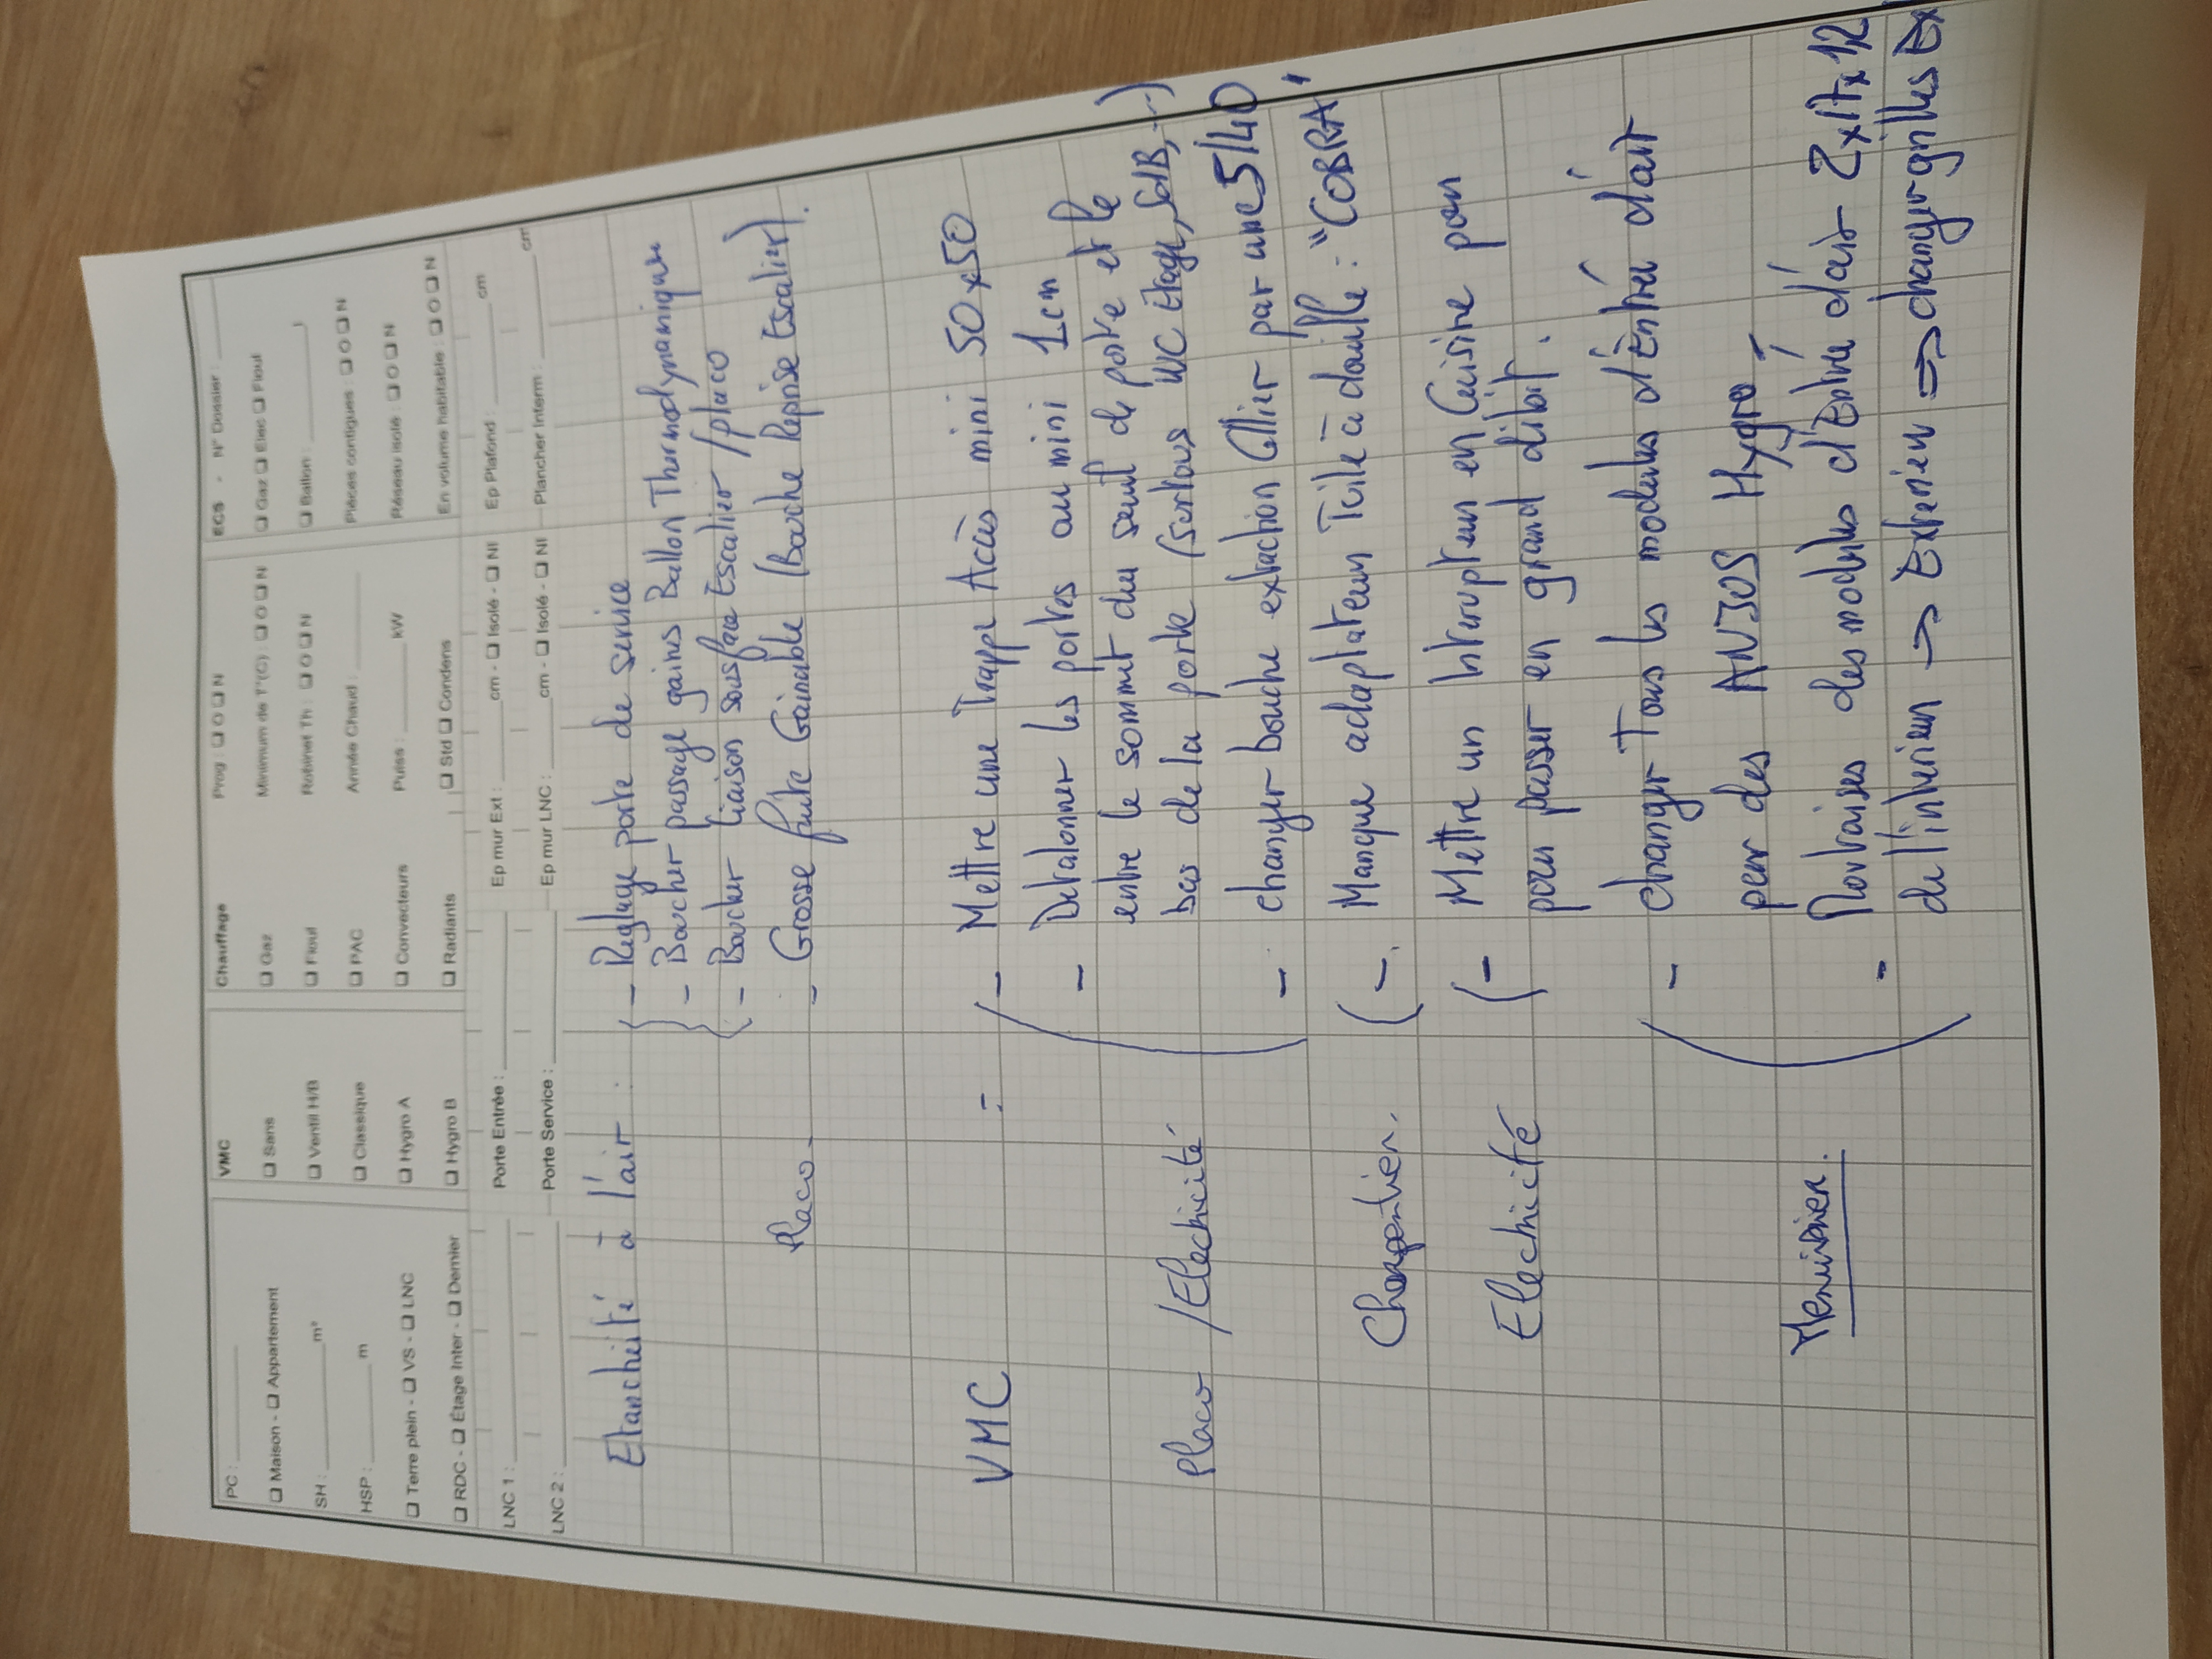 PC : ______
VMC
Chauffage
Prog ❑ O ❑ N
ECS - N° Dossier : ______
❑ Maison - ❑ Appartement
❑ Sans
❑ Gaz
Minimum de T°(G) : ❑ O ❑ N
❑ Gaz ❑ Elec ❑ Fioul
SH : ______ m²
❑ Ventil H/B
❑ Fioul
Robinet Th : ❑ O ❑ N
❑ Ballon : ______ l
HSP : ______ m
❑ Classique
❑ PAC
Année Chaud : ______
Pièces contigues : ❑ O ❑ N
❑ Terre plein - ❑ VS - ❑ LNC
❑ Hygro A
❑ Convecteurs
Puiss : ______ kW
Réseau isolé : ❑ O ❑ N
❑ RDC - ❑ Étage Inter - ❑ Dernier
❑ Hygro B
❑ Radiants
❑ Std ❑ Condens
En volume habitable : ❑ O ❑ N
LNC 1 : ______ Porte Entrée : ______ Ep mur Ext : ______ cm - ❑ Isolé - ❑ NI Ep Plafond : ______ cm
LNC 2 : ______ Porte Service : ______ Ep mur LNC : ______ cm - ❑ Isolé - ❑ NI Plancher Interm : ______ cm
Etanchéité à l'air : - Réglage porte de service
- Boucher passage gaines Ballon Thermodynamique
- Boucher liaison sousface Escalier / placo
Placo - Grosse fuite Gainable (Bouche Reprise Escalier).
VMC : - Mettre une Trappe Accès mini 50x50
- Detalonner les portes au mini 1 cm
entre le sommet du seuil de porte et le
Placo / Electricité bas de la porte (surtous WC Etage, SdB, ...)
- changer bouche extraction Cellier par une 5/40
Charpentier. - Manque adaptateur Tuile à douille : "COBRA"
Electricité - Mettre un Interupteur en Cuisine pour
pour passer en grand débit.
- changer Tous les modules d'Entrée d'air
par des ANJOS Hygro
Menuisier. - Mauvaises des modules d'Entrée d'air 2x17x12
de l'intérieur → Extérieur ⇒ changer grilles Ex